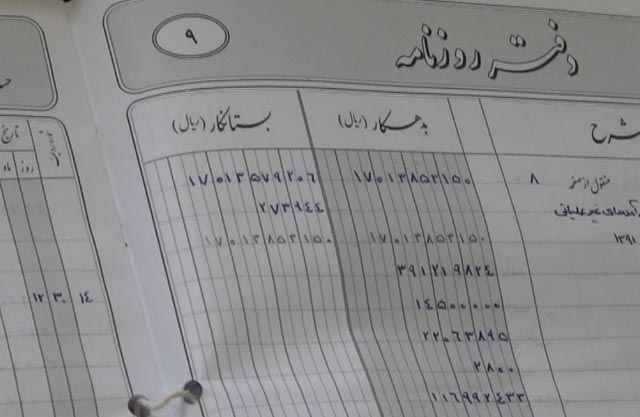 دفتر روزنامه
۹
شرح
بدهکار (ریال)
بستانکار (ریال)
منقول از صفحه ۸ ۱۷۰۱۳۸۵۳۱۵۰ ۱۷۰۱۳۵۷۹۲۰۶
غیرعملیاتی ۲۷۳۹۴۴
۱۳۹۱ ۱۷۰۱۳۸۵۳۱۵۰ ۱۷۰۱۳۸۵۳۱۵۰
۳۹۱۲۱۹۸۲۴
۱۴۵۰۰۰۰۰
۲۲۰۶۳۸۹۵
۲۸۰۰
۱۱۶۹۹۲۴۳۳
تاریخ
روز ماه
۱۴ ۳۰ ۱۲